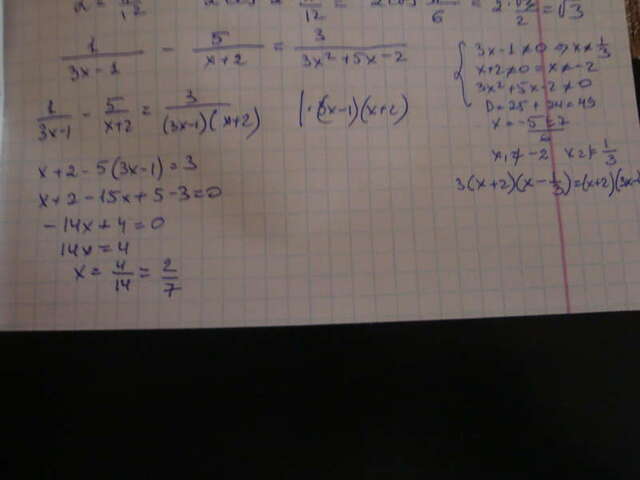 2 = 2·√3/2 = √3
1/(3x-1) - 5/(x+2) = 3/(3x²+5x-2)
1/(3x-1) - 5/(x+2) = 3/((3x-1)(x+2)) |·(3x-1)(x+2)
x+2-5(3x-1)=3
x+2-15x+5-3=0
-14x+4=0
14x=4
x= 4/14 = 2/7
{ 3x-1≠0 ⇒ x≠1/3
x+2≠0 ⇒ x≠-2
3x²+5x-2≠0
D=25+24=49
x₁≠-2 x₂≠1/3
3(x+2)(x-1/3)=(x+2)(3x-1